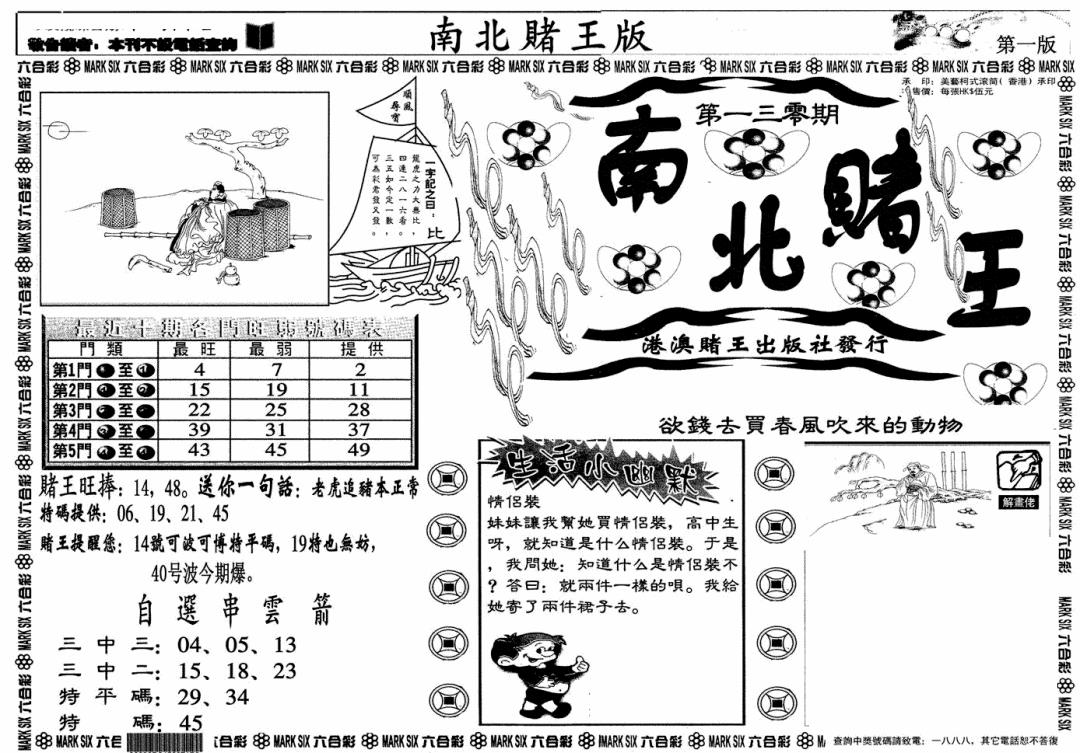 敬告讀者：本刊不設電話查詢
南北賭王版
第一版
六合彩 MARK SIX 六合彩 MARK SIX 六合彩 MARK SIX 六合彩 MARK SIX 六合彩 MARK SIX 六合彩 MARK SIX 六合彩 MARK SIX 六合彩 MARK SIX 六合彩 MARK SIX 六合彩 MARK SIX
承 印：美藝柯式滾筒（香港）承印
售價：每張HK$伍元
順風
尋寶
一字記之曰：比
龍虎之力大無比，
四連二八一六看。
三五如今定一數，
可為彩君發又發。
第一三零期
南北賭王
港澳賭王出版社發行
最近十期各門旺弱號碼表
門類 最旺 最弱 提供
第1門 至 4 7 2
第2門 至 15 19 11
第3門 至 22 25 28
第4門 至 39 31 37
第5門 至 43 45 49
賭王旺捧：14，48。送你一句話：老虎追豬本正常
特碼提供：06、19、21、45
賭王提醒您：14號可波可博特平碼，19特也無妨，
40号波今期爆。
自選串雲箭
三中三：04、05、13
三中二：15、18、23
特平碼：29、34
特碼：45
欲錢去買春風吹來的動物
生活小幽默
情侶裝
妹妹讓我幫她買情侶裝，高中生
呀，就知道是什么情侶裝。于是
，我問她：知道什么是情侶裝不
？答曰：就兩件一樣的唄。我給
她寄了兩件裙子去。
解畫佬
MARK SIX 六合彩 MARK SIX 六合彩 MARK SIX 六合彩 MARK SIX 六合彩 MARK SIX 六合彩 MARK SIX 六合彩
查詢中獎號碼請致電：一八八八，其它電話恕不答復